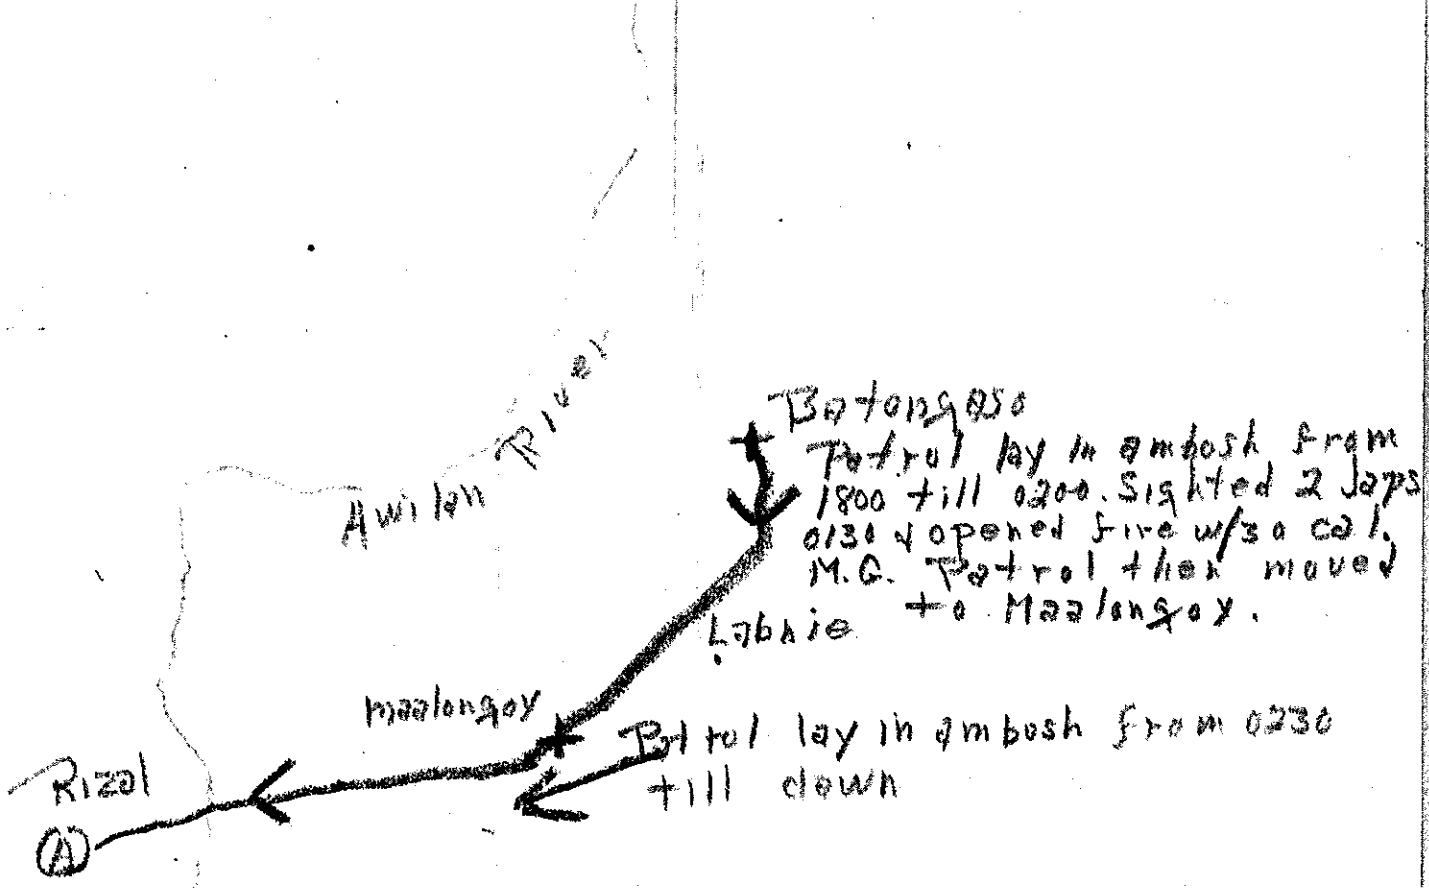 Awilan River
Batongaso
Patrol lay in ambosh from
1800 till 0200. Sighted 2 Japs
0130 & opened fire w/30 cal.
M.G. Patrol then moved
to Maalongoy.
Labnie
maalongoy
Patrol lay in ambosh from 0230
till down
Rizal
A